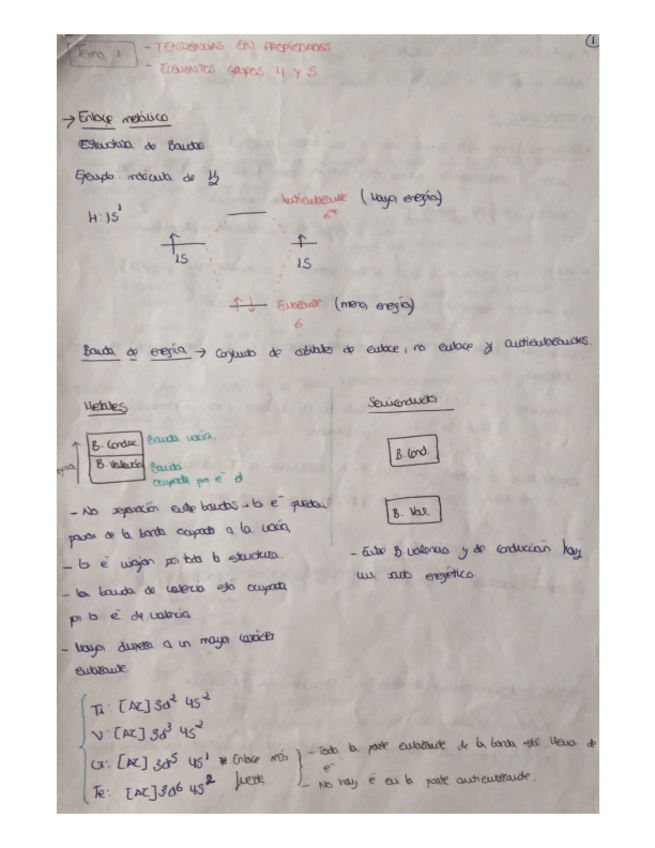 1
Tema 1 - TENDENCIAS EN PROPIEDADES
- ELEMENTOS GRUPOS 4 Y 5
→ Enlace metálico
Estructura de Bandas
Ejemplo: molécula de H2
Antienlazante (Mayor energía)
H: 1S¹ 6*
1S 1S
Enlazante (menor energía)
6
Banda de energía → Conjunto de orbitales de enlace, no enlace y antienlazantes.
Metales Semiconductor
B. Conduc Banda vacía.
B. Valencia Banda
ocupada por e⁻ d
B. Cond.
B. Val.
- No separación entre bandas → los e⁻ pueden
pasar de la banda ocupada a la vacía
- los e⁻ viajan por toda la estructura.
- la banda de valencia está ocupada
por los e⁻ de valencia
- Mayor dureza a un mayor carácter
enlazante
- Entre B. valencia y de conducción hay
un salto energético.
Ti: [Ar] 3d² 4S²
V: [Ar] 3d³ 4S²
Cr: [Ar] 3d⁵ 4S¹ * Enlace más
fuerte
Fe: [Ar] 3d⁶ 4S²
- Toda la parte enlazante de la banda está llena de
e⁻
- No hay e⁻ en la parte antienlazante.